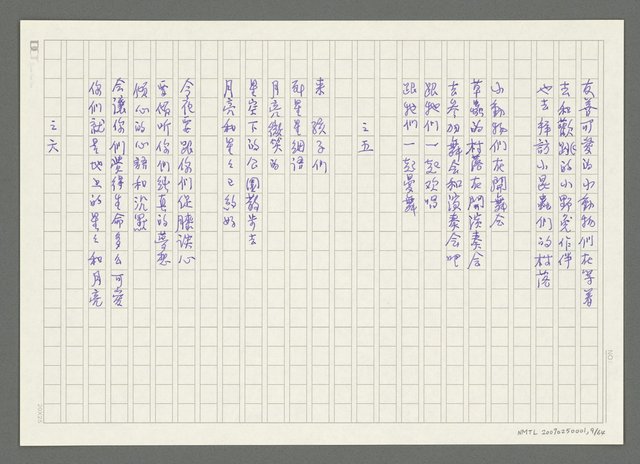 友善可愛的小動物們在等着
去和歡跳的小野兔作伴
也去拜訪小昆蟲們的村落
小動物們在開舞会
草蟲的村落在開演奏会
去参加舞会和演奏会吧
跟牠們一起欢唱
跟牠們一起曼舞
之五
來 孩子們
和星星細語
月亮微笑的
星空下的公園散步去
月亮和星星已約好
今夜要跟你們促膝談心
要傾听你們純真的夢想
傾心的心語和沉默
会讓你們覺得生命多么可愛
你們就是地上的星星和月亮
之六
NO.
20X25
NMTL 20070250001, 9/64